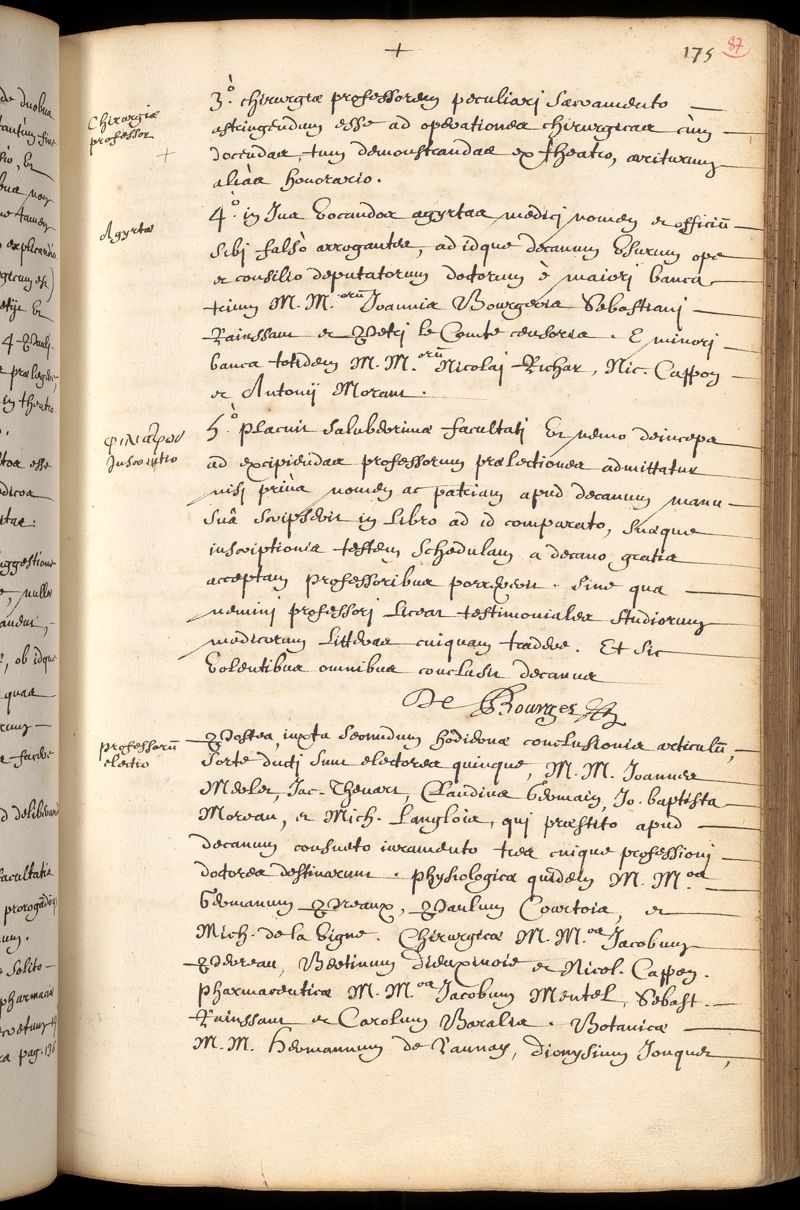 +
175
87
Chirurgiæ
professor
+
3.º chirurgiæ professorem peculiari sacramento
astringendum esse ad operationes chirurgicas cùm
docendas, tum demonstrandas ex theatro, cariturum
aliàs honorario.
Agyrtæ
4.º in Jus vocandos agyrtas medicj nomen et officiũ
sibj falsò arrogantes, ad idque decanum vsurum ope
et consilio deputatorum doctorum è maiorj banca
trium M. M.orũ Joannis Bourgeois Sebastianj
Rainssant et Petrj le Comte censoris. E minorj
banca totidem M. M.orũ Nicolaj Richar, Nic. Cappon
et Antonij Morant.
φιλιατρων
Inscriptio
5.º Placuit saluberrimæ facultatj vt nemo deinceps
ad excipiendas professorum prælectiones admittatur
nisj priùs nomen ac patriam apud decanum manu
suâ scripserit in libro ad id comparato, suæque
inscriptionis testem schedulam a decano gratis
acceptam professoribus porrexerit. sine qua
neminj professorj liceat testimoniales studiorum
medicorum litteras cuiquam tradere. Et sic
volentibus omnibus conclusit decanus
De Bourges
professorũ
electio
Postea, iuxta secundum hodiernæ conclusionis articulũ,
sorte ductj sunt electores quinque, M. M. Joannes
Merlet, Jac. Thevart, Claudius Germain, Jo. baptista
Moreau, et Mich. Langlois, qui præstito apud
decanum consueto iuramento tres cuique professionj
doctores destinarunt. physiologicæ quidem M. M.os
Germanum Preaux, Paulum Courtois, et
Mich. de la Vigne. Chirurgicæ M. M.os Jacobum
Perreau, Bertinum dieuxivoie et Nicol. Cappon.
pharmaceuticæ M. M.os Jacobum Mentel, Sebast.
Rainssant et Carolum Baralis. Botanicæ
M. M. hermannum de Launay, dionysium Jonquet,